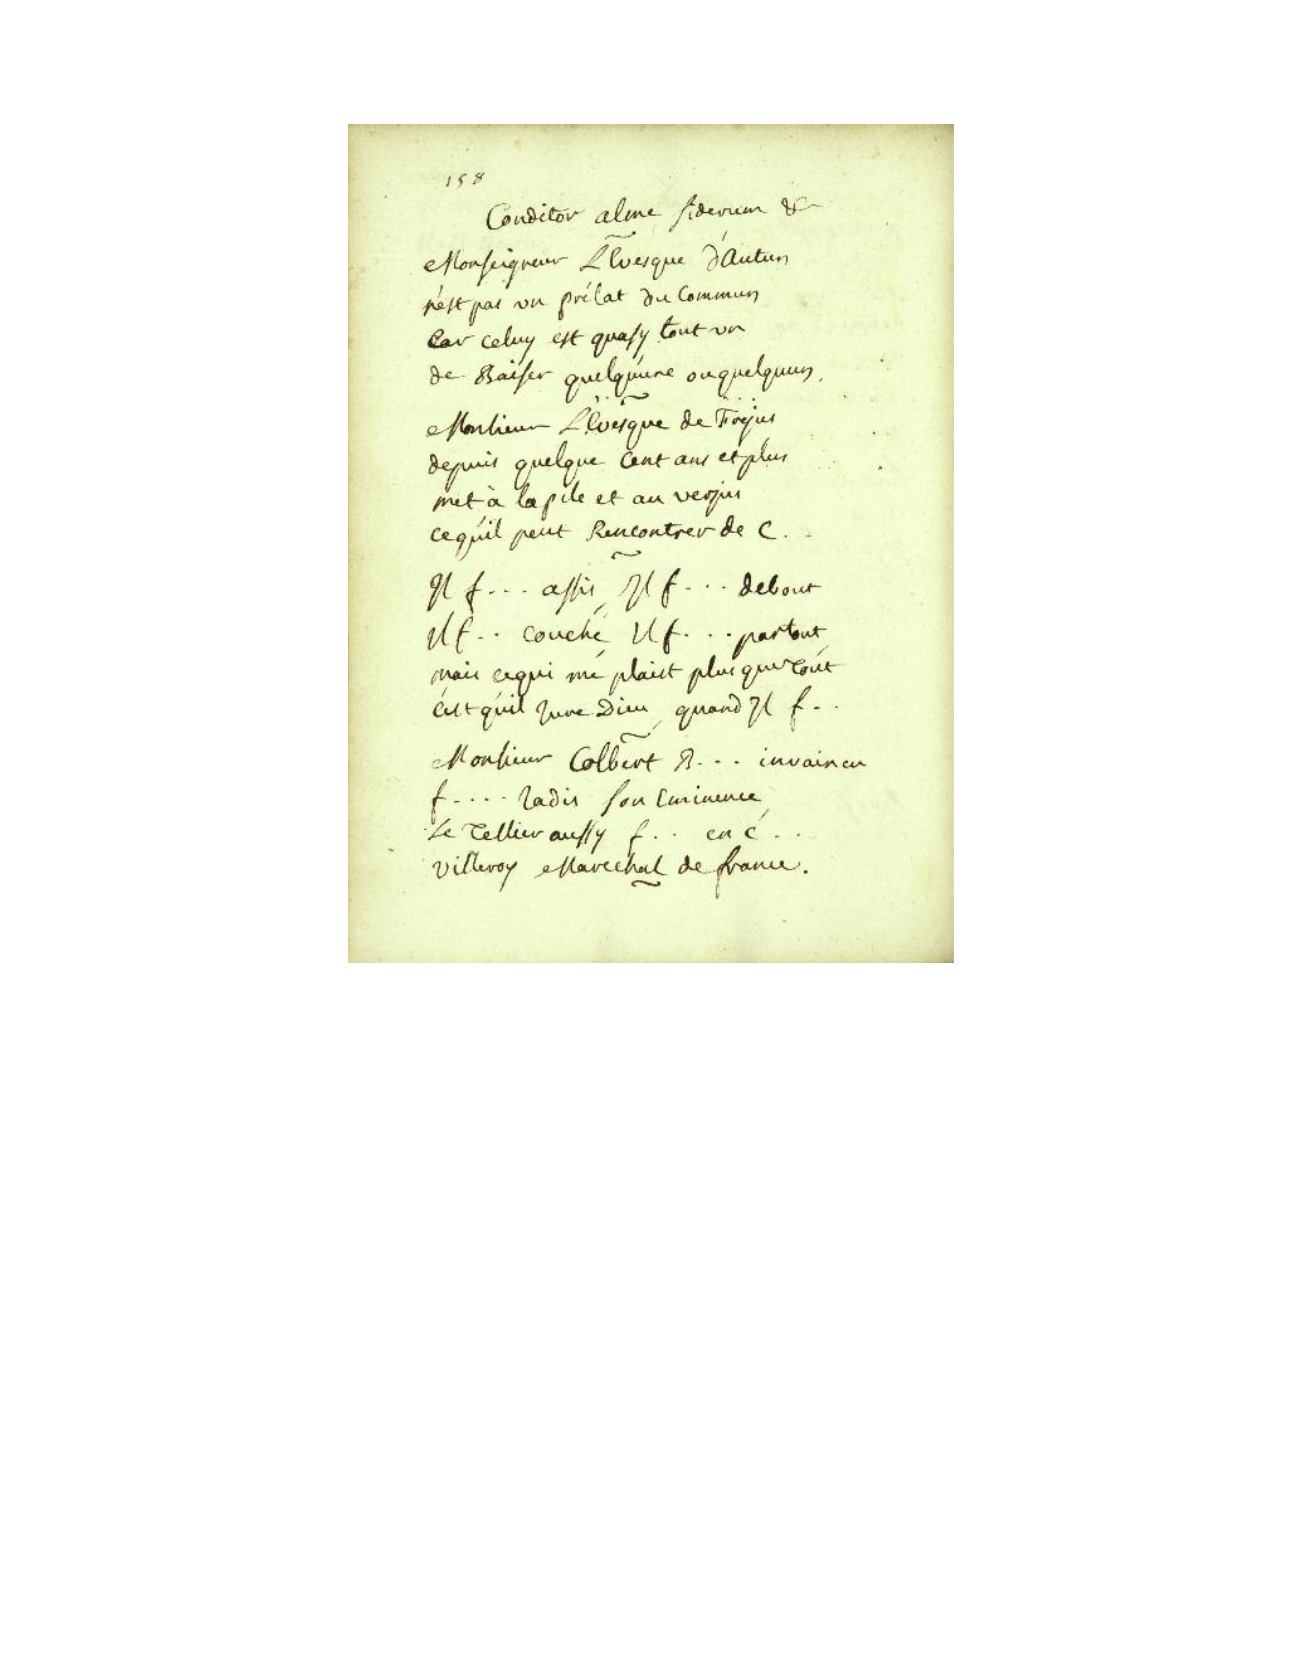 158
Conditor alme siderum &c
Monseigneur L'Evesque d'Autun
n'est pas vn prélat du Commun
Car celuy est quasy tout vn
de Baiser quelqu'une ou quelquun.
Monsieur L'Evesque de Frejus
depuis quelque Cent ans et plus
met à la pile et au verjus
ce qu'il peut Rencontrer de C..
Il f... assis, Il f... debout
Il f.. couché, Il f... partout,
mais ce qui me plaist plus que tout
c'est qu'il Jure Dieu, quand Il f..
Monsieur Colbert B... invaincu
f.... Jadis son Eminence,
Le Tellier aussy f.. en c..
villeroy Marechal de france.